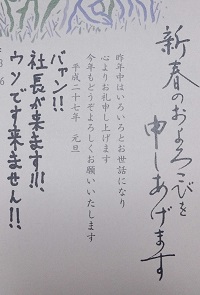 新春のおよろこびを
申しあげます
昨年中はいろいろとお世話になり
心よりお礼申し上げます
今年もどうぞよろしくお願いいたします
平成二十七年 元旦
バァン!!
社長が来ます!!!
ウソです来ません!!